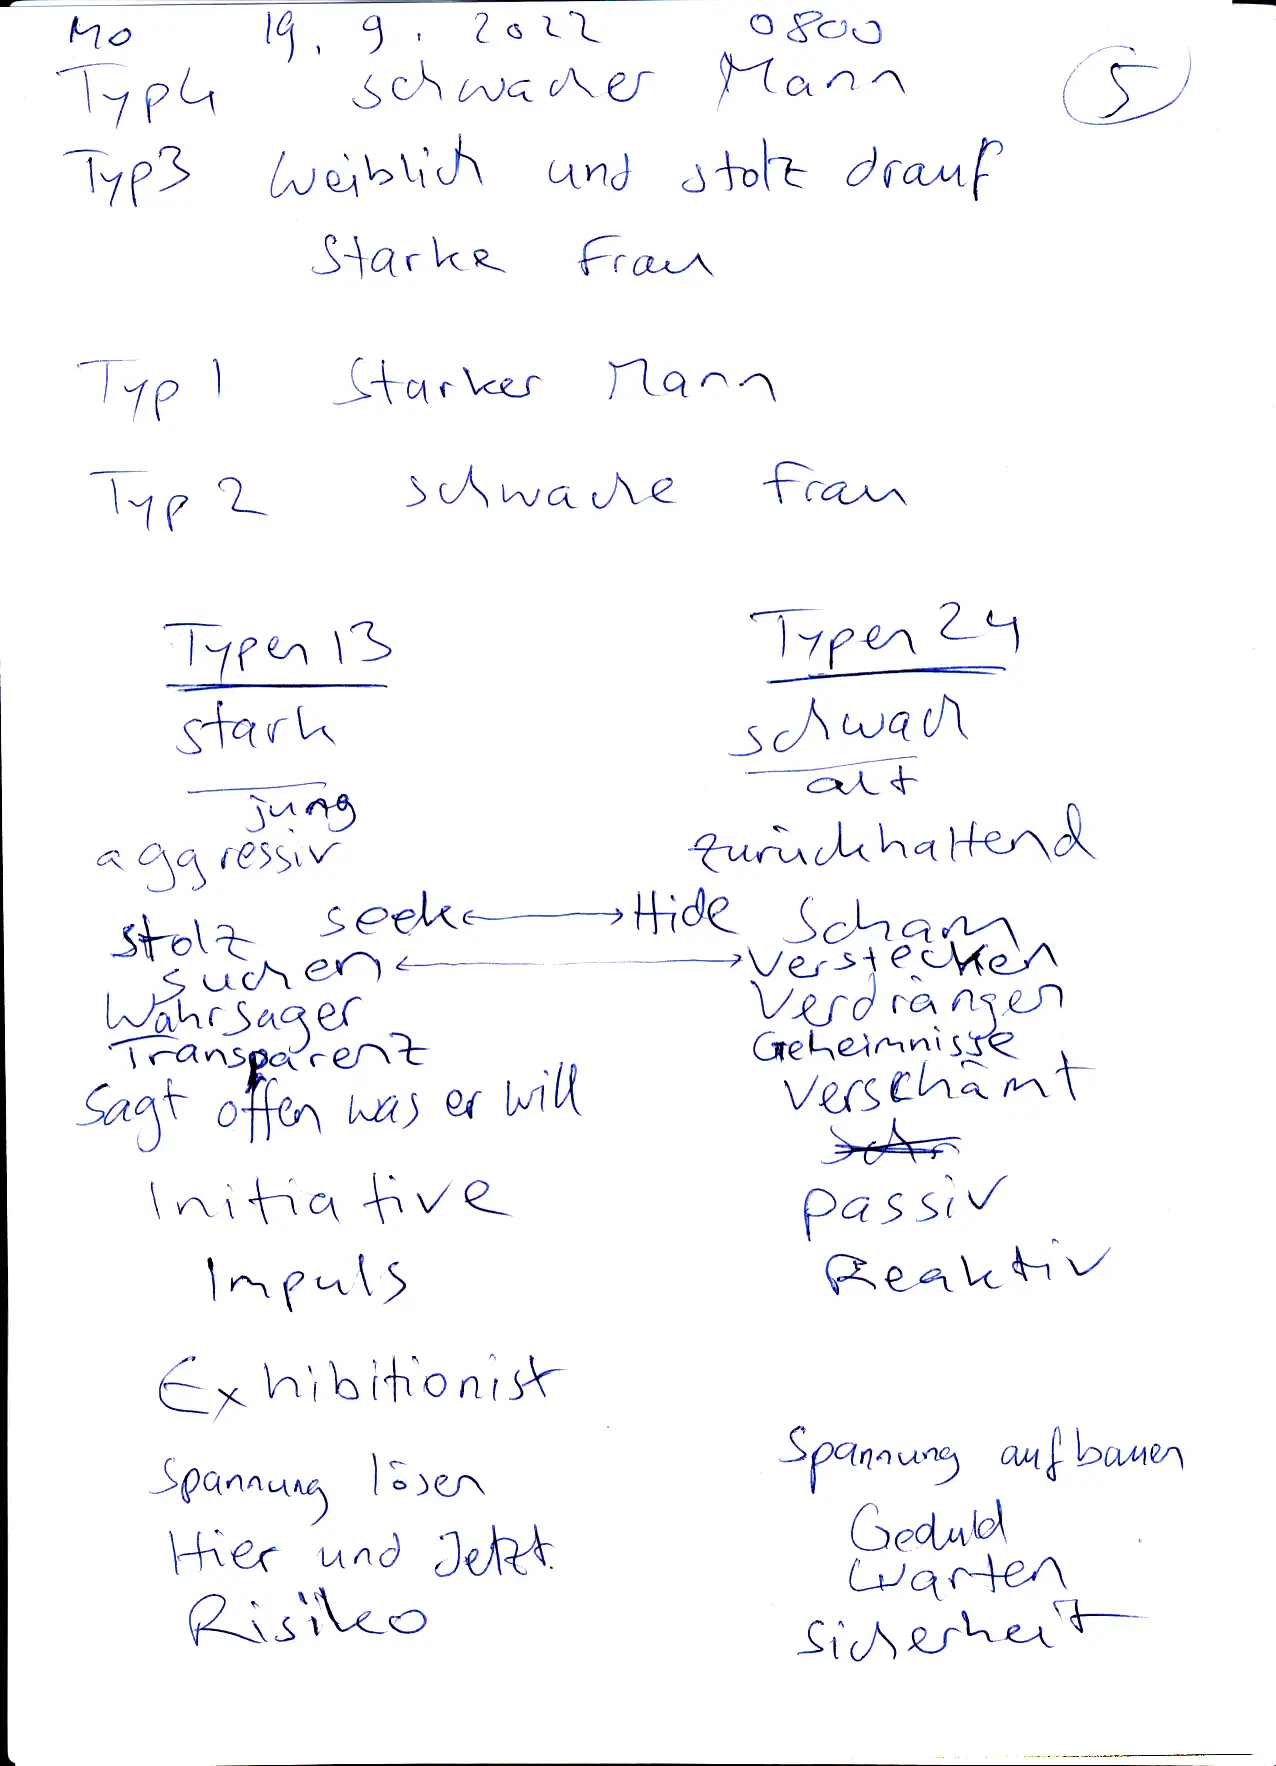 Mo 19. 9. 2022 0800
Typ4 schwacher Mann 5
Typ3 Weiblich und stolz drauf
Starke Frau
Typ 1 Starker Mann
Typ 2 schwache Frau
Typen 13 Typen 24
stark schwach
jung alt
aggressiv zurückhaltend
stolz seek ↔ Hide Scham
suchen ↔ Verstecken
Wahrsager Verdrängen
Transparenz Geheimnisse
Sagt offen was er will verschämt
Initiative passiv
Impuls Reaktiv
Exhibitionist
Spannung lösen Spannung aufbauen
Hier und Jetzt. Geduld
Warten
Risiko Sicherheit